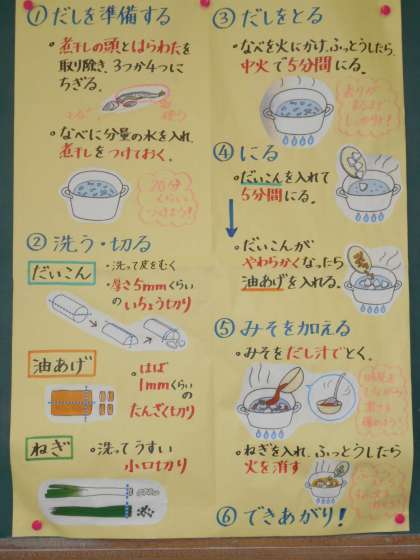 ①だしを準備する
・煮干しの頭とはらわたを
取り除き、3つか4つに
ちぎる。
・なべに分量の水を入れ、
煮干しをつけておく。
②洗う・切る
だいこん
・洗って皮をむく
・厚さ5mmくらい
のいちょう切り
油あげ
・はば
1mmくらい
のたんざく切り
ねぎ
・洗ってうすい
小口切り
③だしをとる
・なべを火にかけ、ふっとうしたら、
中火で5分間にる。
④にる
・だいこんを入れて
5分間にる。
・だいこんが
やわらかくなったら
油あげを入れる。
⑤みそを加える
・みそをだし汁でとく。
・ねぎを入れ、ふっとうしたら
火を消す
⑥できあがり!